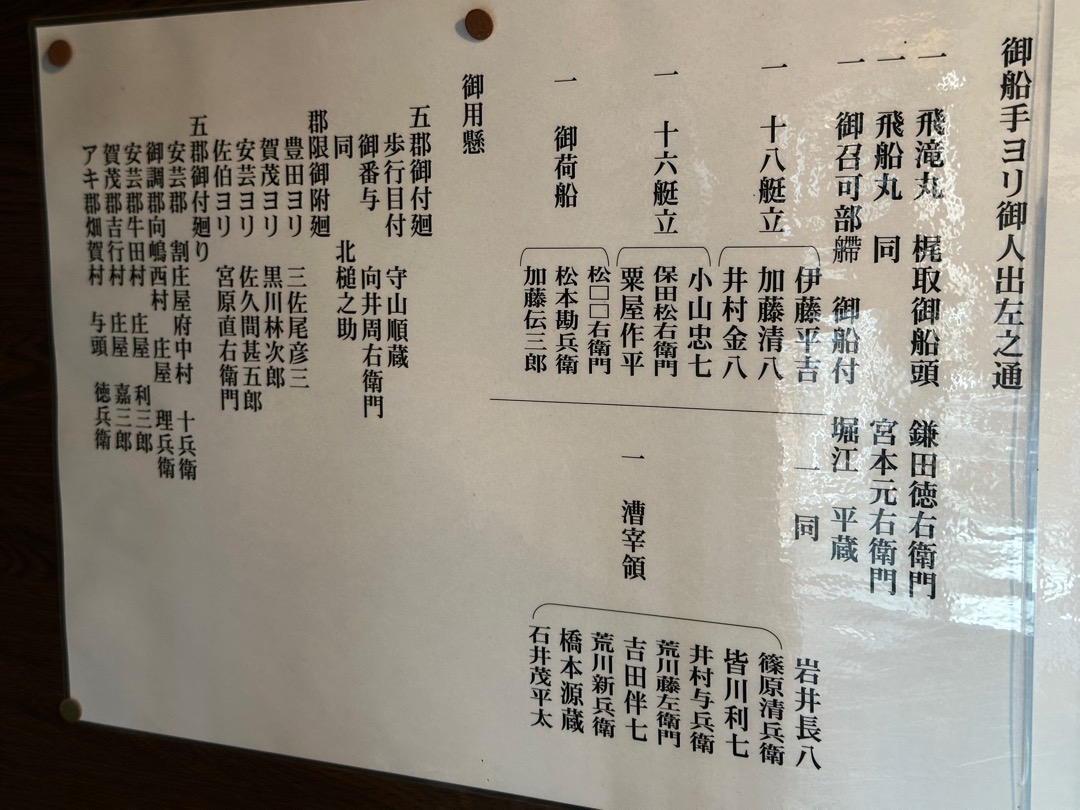 御船手ヨリ御人出左之通
一 飛滝丸 梶取御船頭 鎌田徳右衛門
一 飛船丸 同 宮本元右衛門
一 御召可部艜 御船付 堀江 平蔵
一 十八艇立 伊藤平吉
加藤清八
井村金八
一 十六艇立 小山忠七
保田松右衛門
粟屋作平
一 御荷船 松□□右衛門
松本勘兵衛
加藤伝三郎
一 同 岩井長八
一 漕宰領 篠原清兵衛
皆川利七
井村与兵衛
荒川藤左衛門
吉田伴七
荒川新兵衛
橋本源蔵
石井茂平太
御用懸
五郡御付廻
歩行目付 守山順蔵
御番与 向井周右衛門
同 北槌之助
郡限御附廻
豊田ヨリ 三佐尾彦三
賀茂ヨリ 黒川林次郎
安芸ヨリ 佐久間甚五郎
佐伯ヨリ 宮原直右衛門
五郡御付廻り
安芸郡 割庄屋府中村 十兵衛
御調郡向嶋西村 庄屋 理兵衛
安芸郡牛田村 庄屋 利三郎
賀茂郡吉行村 庄屋 嘉三郎
アキ郡畑賀村 与頭 徳兵衛